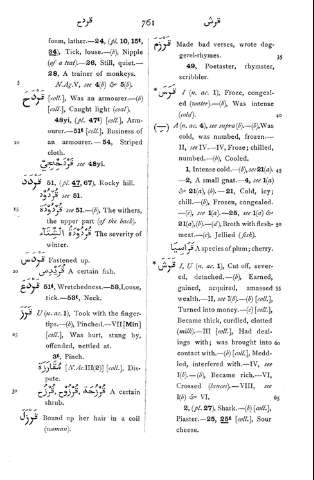 قودح
761
قوش
foam, lather.—24, (pl. 10, 15²,
24), Tick, louse.—(b), Nipple
(of a teat).—26, Still, quiet.—
28, A trainer of monkeys.
N.Ag.V, see 4(b) & 5(b).
[coll.], Was an armourer.—(b)
[coll.], Caught light (coal).
48yi, (pl. 47¹) [coll.], Arm-
ourer.—51² [coll.], Business of
an armourer.—54, Striped
cloth.
see 48yi.
51, (pl. 47, 67), Rocky hill.
see 51.
see 51.—(b), The withers,
the upper part (of the back).
The severity of
winter.
Fastened up.
A certain fish.
51², Wretchedness.—53, Louse,
tick.—58², Neck.
U (n. ac. 1), Took with the finger-
tips.—(b), Pinched.—VII [Min]
[coll.], Was hurt, stung by,
offended, nettled at.
3², Pinch.
[N.Ac.III(2)] [coll.], Dis-
pute.
A certain
shrub.
Bound up her hair in a coil
(woman).
Made bad verses, wrote dog-
gerel-rhymes.
49, Poetaster, rhymster,
scribbler.
I (n. ac. 1), Froze, congeal-
ed (water).—(b), Was intense
(cold).
A (n. ac. 4), see supra (b).—(b), Was
cold, was numbed, frozen.—
II, see IV.—IV, Froze; chilled,
numbed.—(b), Cooled.
1, Intense cold.—(b), see 21(a).
—2, A small gnat.—4, see 1(a)
& 21(a), (b).—21, Cold, icy;
chill.—(b), Frozen, congealed.
—(c), see 1(a).—25, see 1(a) &
21(a), (b).—(d), Broth with flesh-
meat.—(e), Jellied (fish).
A species of plum; cherry.
I, U (n. ac. 1), Cut off, sever-
ed, detached.—(b), Earned,
gained, acquired, amassed
wealth.—II, see I(b).—(b) [coll.],
Turned into money.—(c) [coll.],
Became thick, curdled, clotted
(milk).—III [coll.], Had deal-
ings with; was brought into
contact with.—(b) [coll.], Medd-
led, interfered with.—IV, see
I(b).—(b), Became rich.—VI,
Crossed (lances).—VIII, see
I(b) & VI.
2, (pl. 27), Shark.—(b) [coll.],
Piaster.—25, 25² [coll.], Sour
cheese.